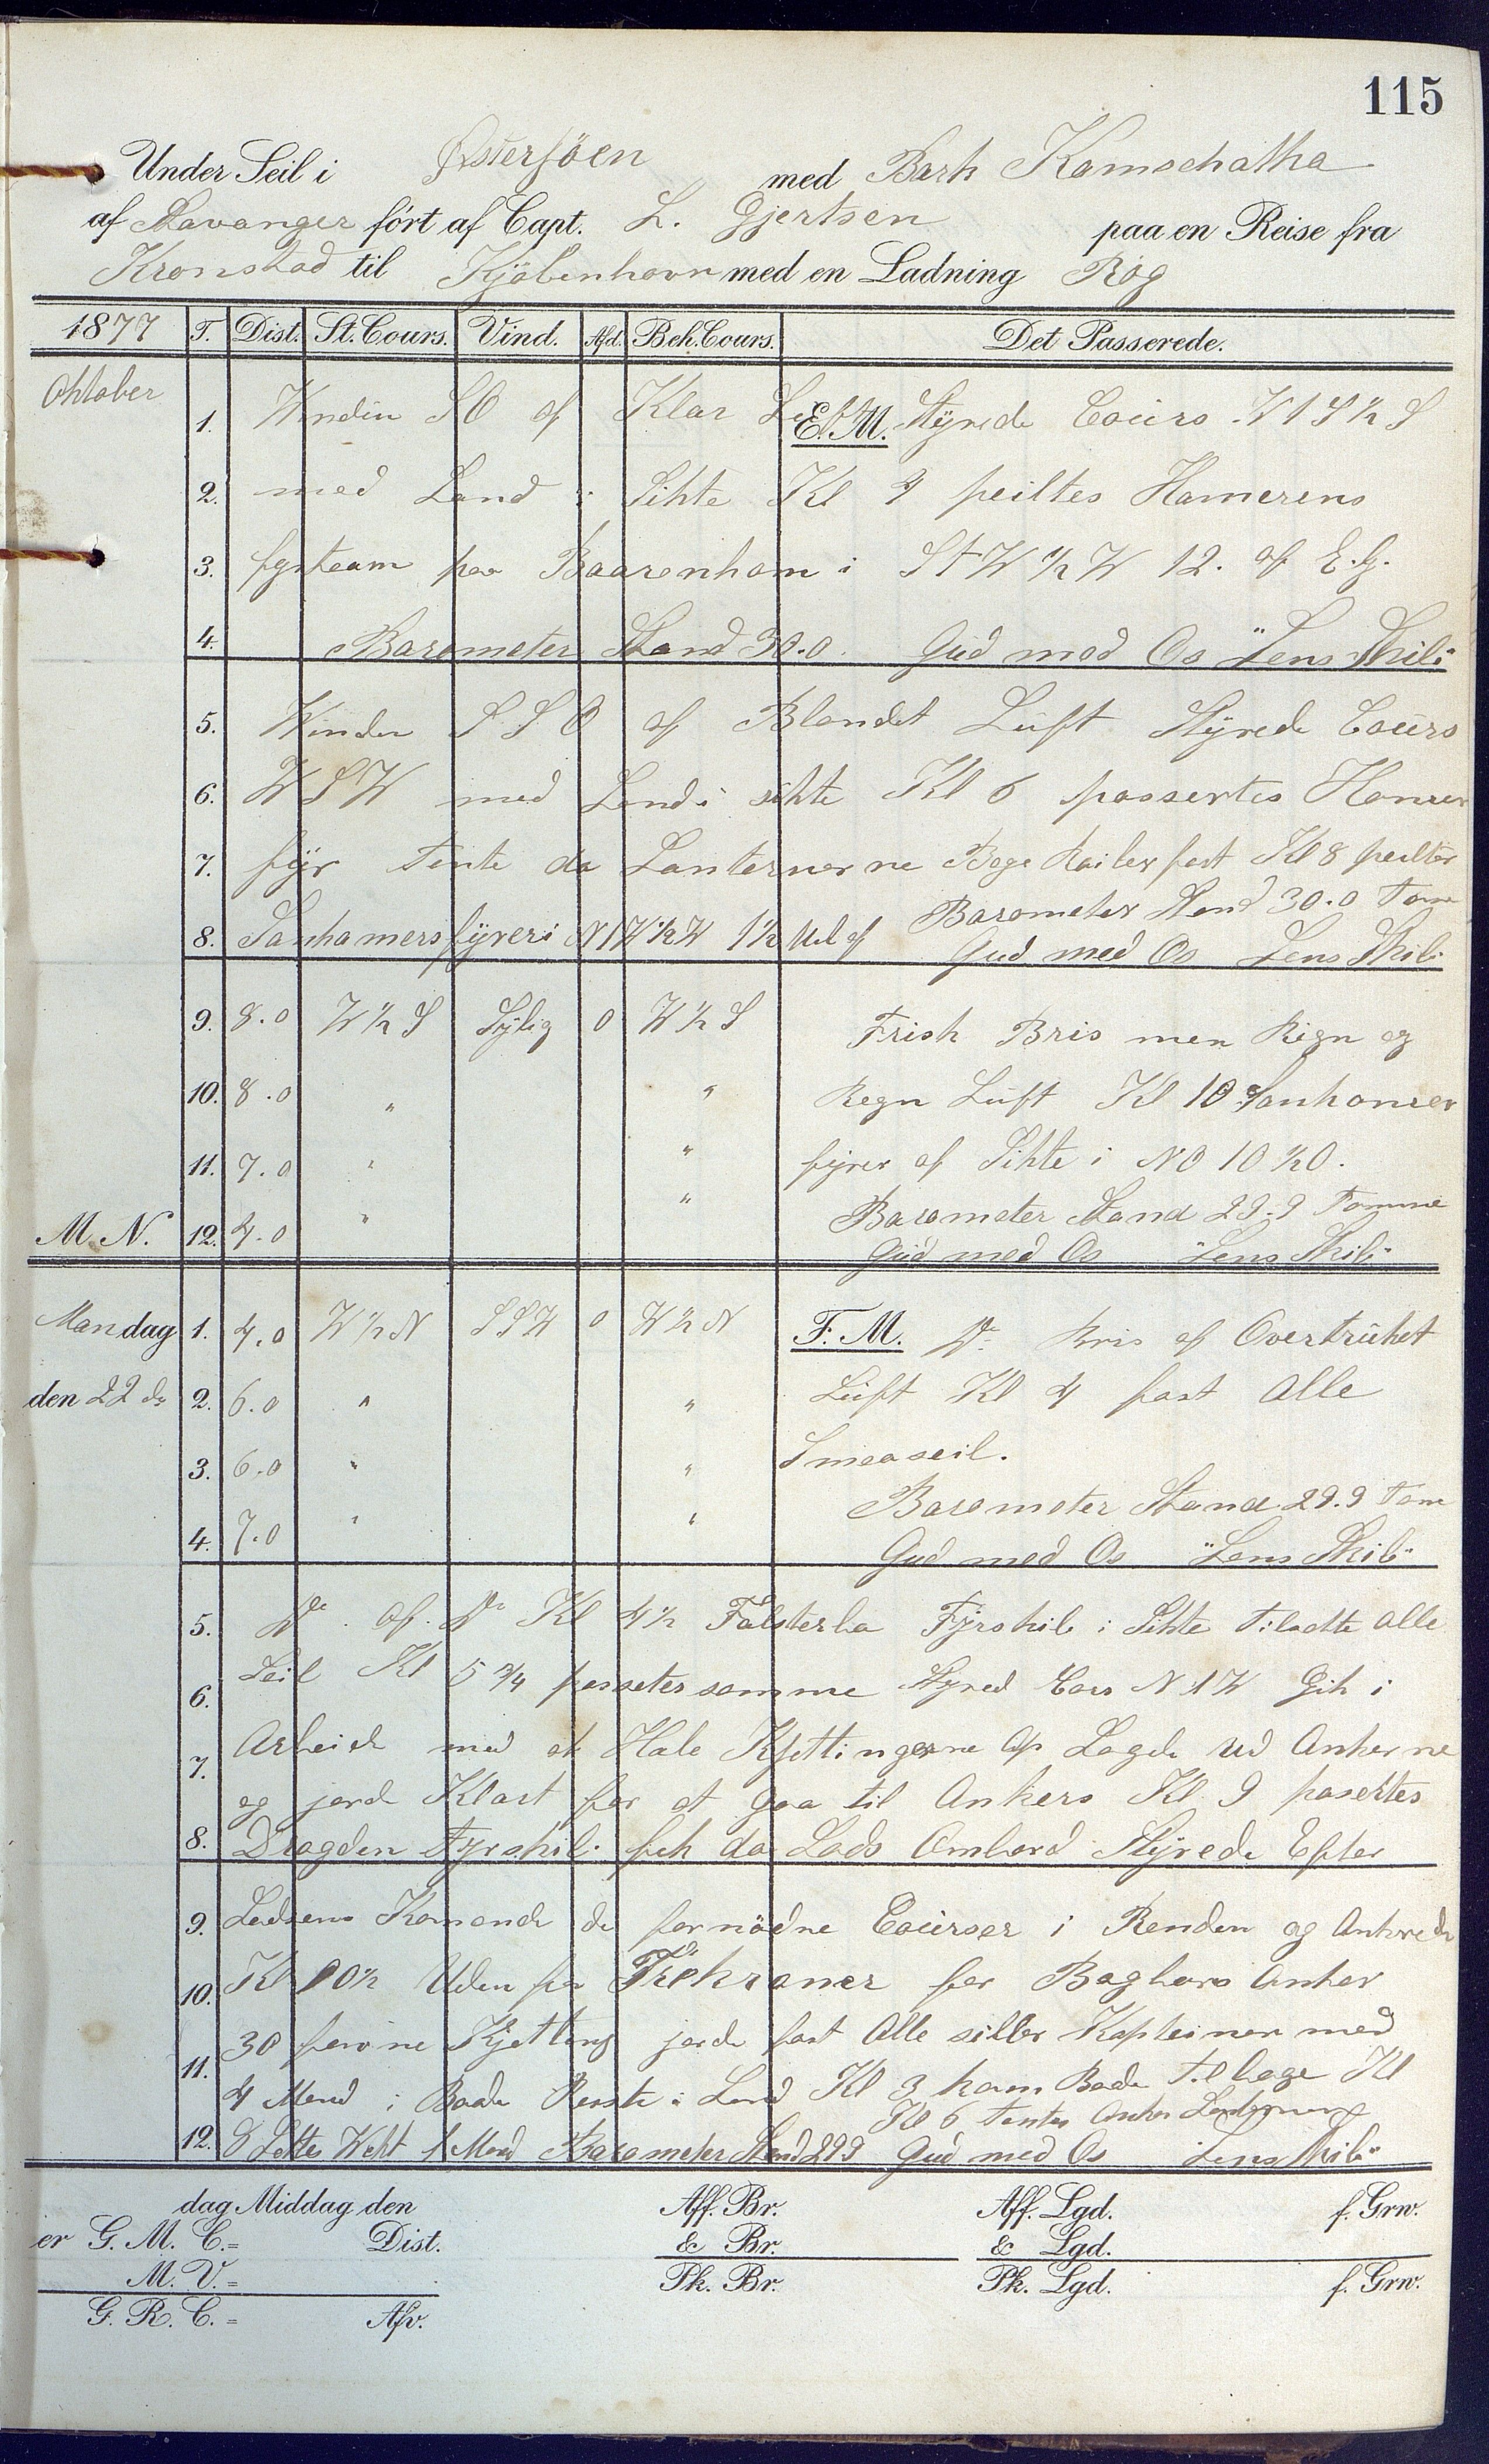 115
Under Seil i Østersöen med Bark Kamschatka
af Stavanger fórt af Capt. L. Gjertsen paa en Reise fra
Kronstad til Kjöbenhavn med en Ladning Rog
1877 T. Dist. St. Cours. Vind. Afd. Beh. Cours. Det Passerede.
Oktober 1. Vinden SO af Klar Luft E. M. Styrede Coürs W 1 S ½ S
2. med Land i Sikte Kl 9 peiltes Hamerens
3. paa i StW ½ W 12. af E. G.
4. Barometer Stand 30.0. Güd med Os "Lens Skib"
5. Vinden SSO af Blandet Lüft Styrede Coürs
6. WSW med Land i sikte Kl 6 passertes Hamer
7. fÿr tente da Lanternerne fast Kl 8 peiltes
8. Sanhamers fÿrer i N 1 W ½ W 1½ Mil af Barometer Stand 30.0 Tom
Gud med Os Lens Skib
9. 8.0 W ½ S Sÿlig 0 W ½ S Frisk Bris men Regn og
10. 8.0 " " Regn Lüft Kl 10 Sanhamer
11. 7.0 " " fÿrer af Sikte i NO 10 ½ O.
M. N. 12. 4.0 " " Barometer Stand 29.9 Tomme
Güd med Os "Lens Skib"
Mandag 1. 4.0 W ½ N SSW 0 W ½ N F. M. Do Bris af Overtrüket
den 22 de 2. 6.0 " " Lüft Kl 4 fast Alle
3. 6.0 " " Smaaseil.
4. 7.0 " " Barometer Stand 29.9 Tom
Gud med Os "Lens Skib"
5. Do af Do Kl 4½ Falsterbo Fÿrskib i Sikte Tilsatte alle
6. Seil Kl 5 ¾ passetes samme Styred Cors N 1 W Gik i
7. Arbeide med at Hale Kjettingerne Op Lagde ud Ankerne
og jorde Klart for at gaa til Ankers Kl 9 pasertes
8. Dragden Fyrskib fik da Lods Ombord Styrede Efter
9. Lodsens Komande de fornödne Coürser i Renden og Ankrede
10. Kl 10½ Uden for Trekroner for Bagbors Anker
11. 30 favne Kjetting jorde fast Alle siller Kapteinen med
4 Mand i Baade Reiste i Land Kl 3 kom Bade Tilbage Kl
Kl 6 Tentes Anker Lanternerne
12. 8 Settes Wakt 1 Mand Barometer Stand 299 Gud med Os Lens Skib"
dag Middag den Aff. Br. Aff. Lgd. f. Grw.
er G. M. C.= Dist. & Br. & Lgd.
M. V.= Pk. Br. Pk. Lgd. f. Grw.
G. R. C.= Afv.